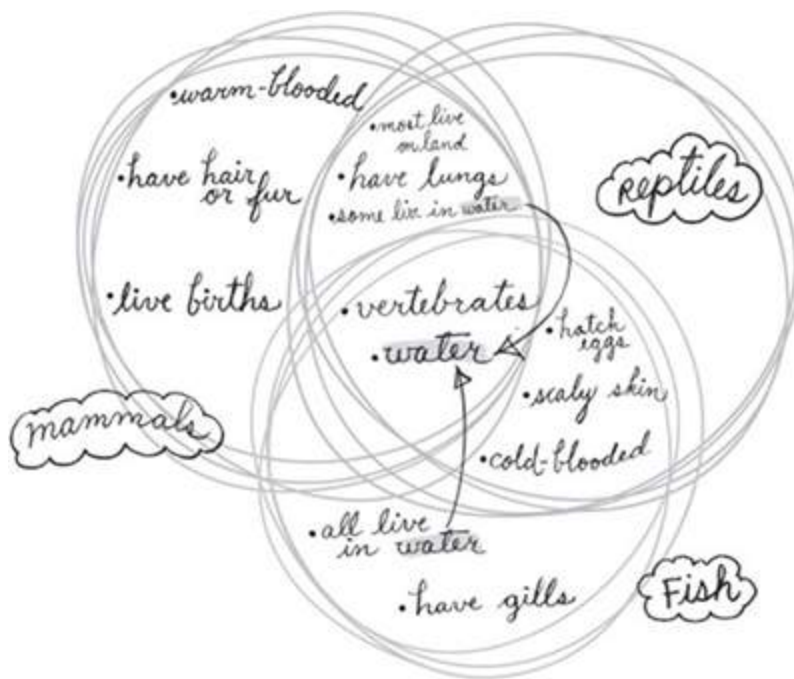 •warm-blooded
•have hair
or fur
•live births
mammals
•most live
on land
•have lungs
•some live in water
Reptiles
•vertebrates
•water
•hatch
eggs
•scaly skin
•cold-blooded
•all live
in water
•have gills
Fish